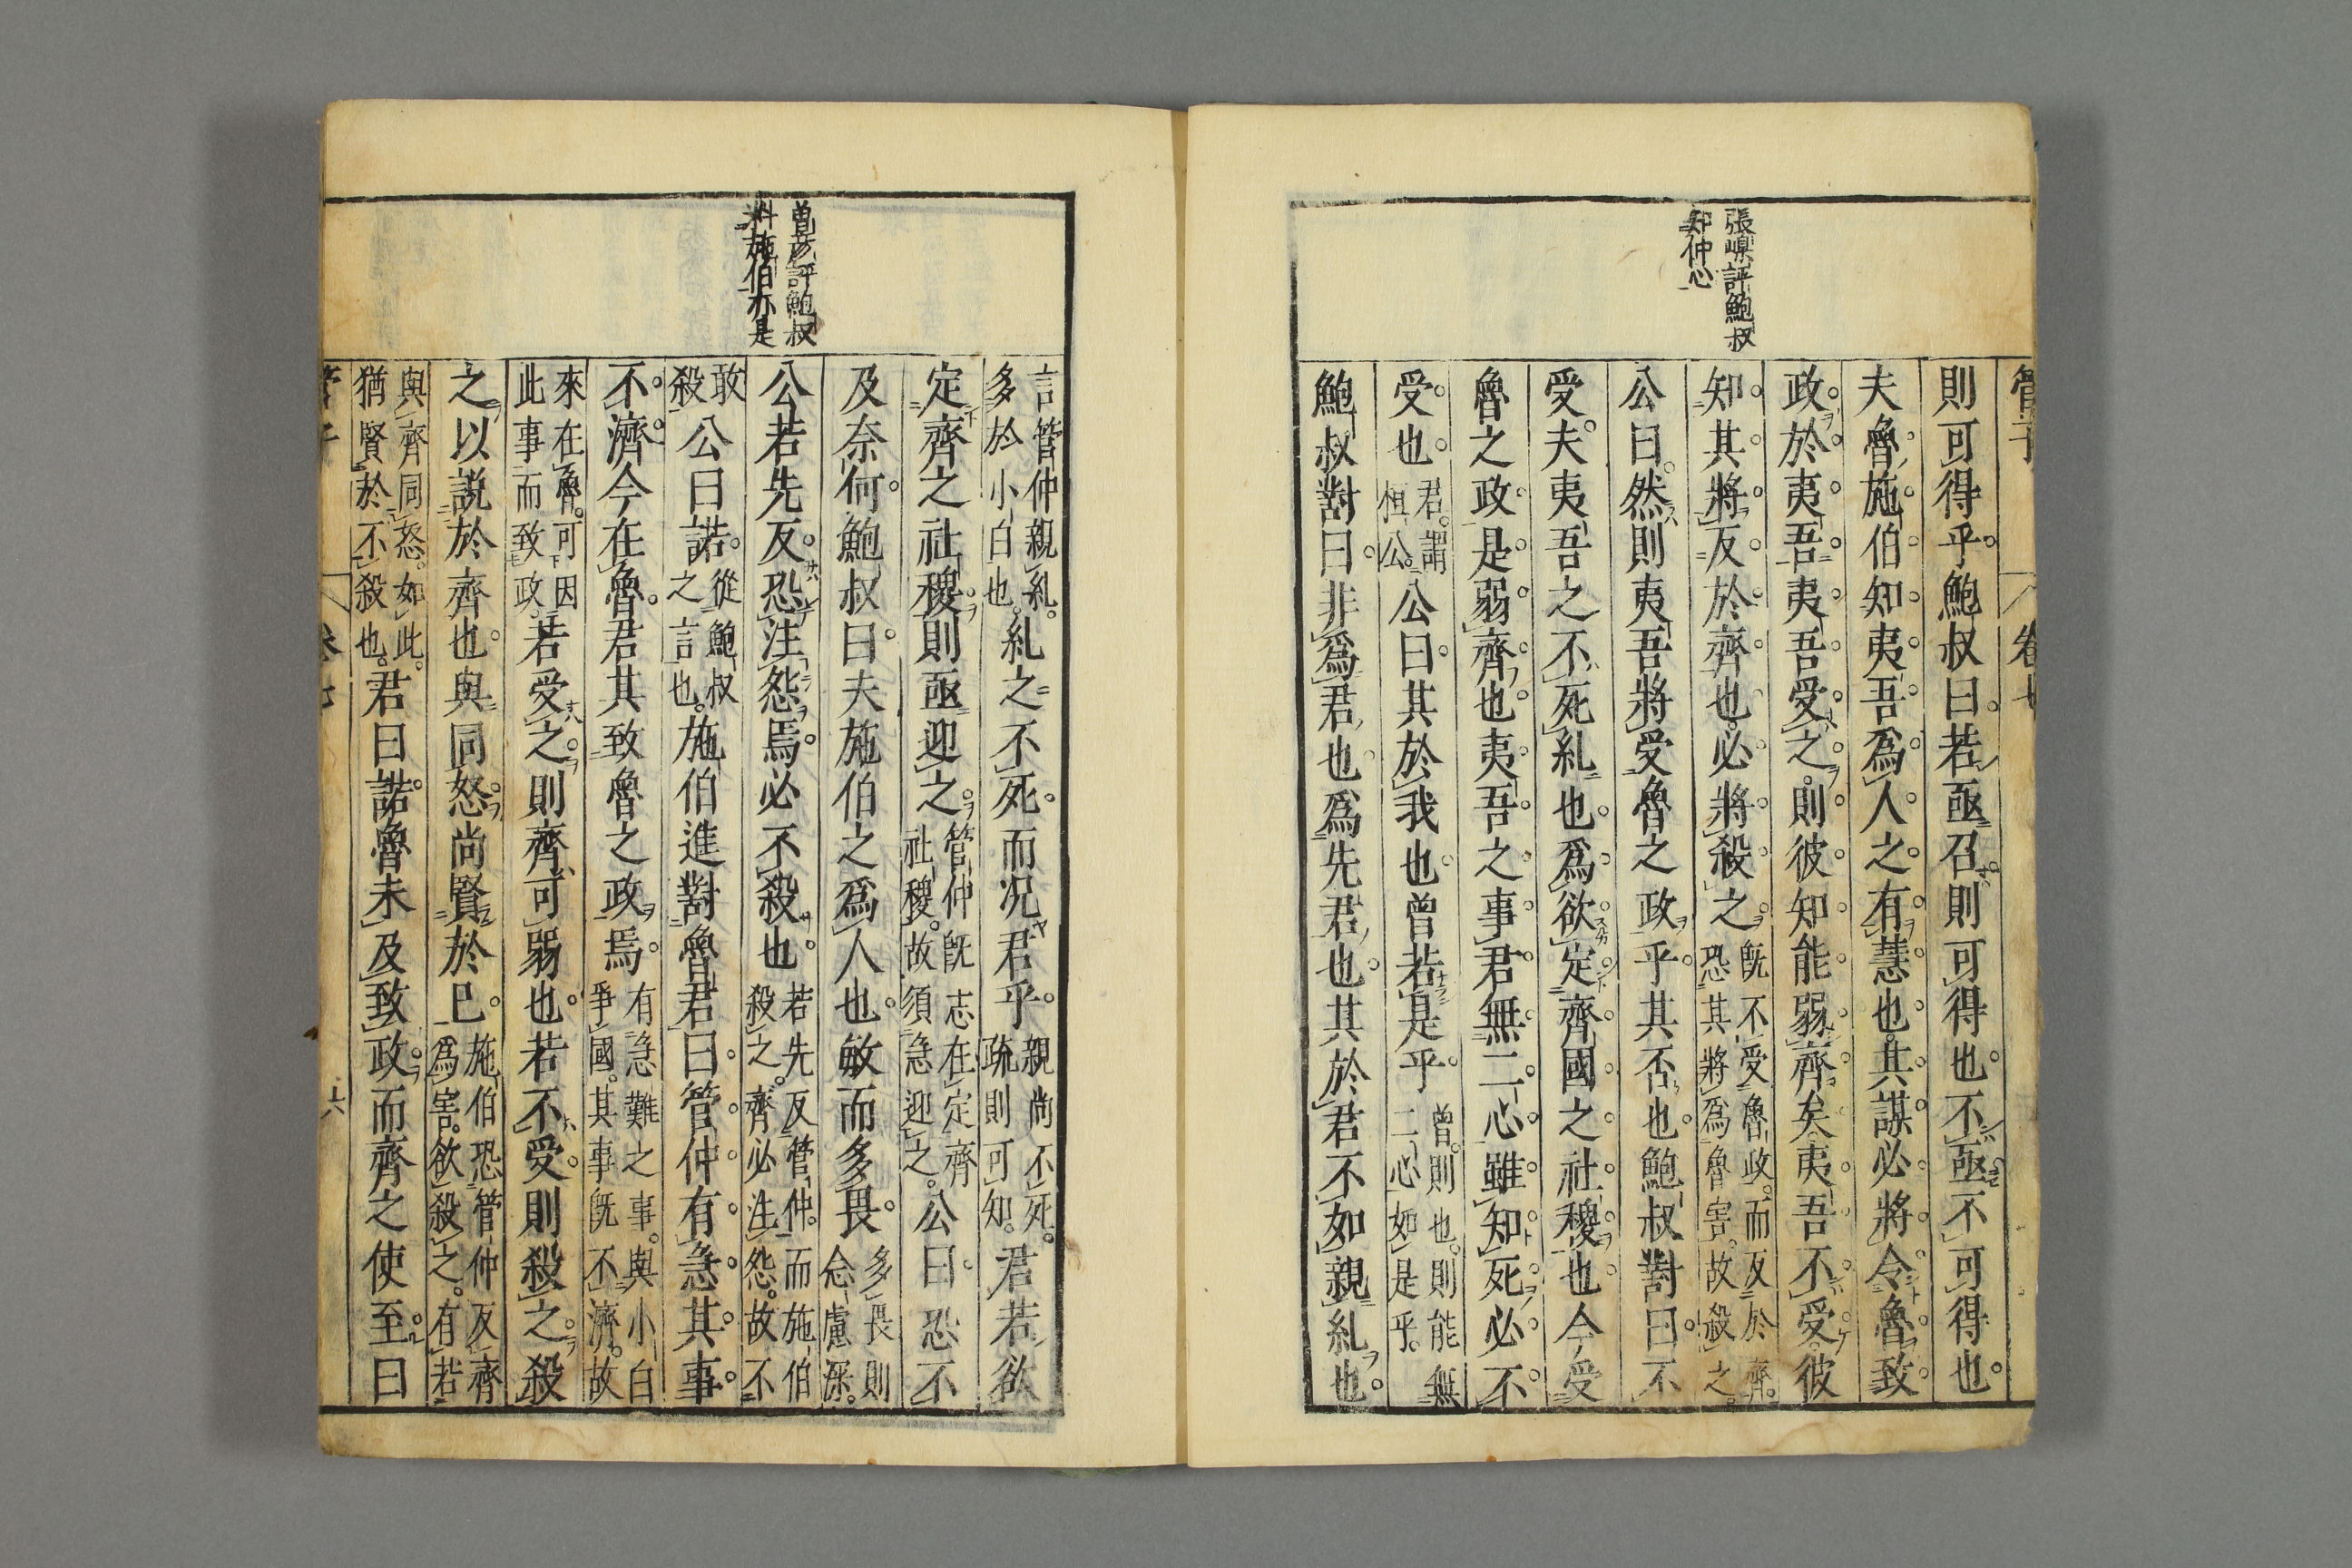 管子 卷七
張嵲評鮑叔
知仲心
則可得乎鮑叔曰若亟召則可得也不亟不可得也
夫魯施伯知夷吾爲人之有慧也其謀必將令魯致
政於夷吾夷吾受之則彼知能弱齊矣夷吾不受彼
知其將反於齊也必將殺之既不受魯政而反於齊恐其將爲魯害故殺之
公曰然則夷吾將受魯之政乎其否也鮑叔對曰不
受夫夷吾之不死糺也爲欲定齊國之社稷也今受
魯之政是弱齊也夷吾之事君無二心雖知死必不
受也君謂桓公公曰其於我也曾若是乎曾則也則能無二心如是乎
鮑叔對曰非爲君也爲先君也其於君不如親糺也
曾彦評鮑叔
料施伯亦是
言管仲親糺多於小白也糺之不死而况君乎親尚不死疏則可知君若欲
定齊之社稷則亟迎之管仲既志在定齊社稷故須急迎之公曰恐不
及奈何鮑叔曰夫施伯之爲人也敏而多畏多畏則念慮深
公若先反恐注怨焉必不殺也若先反管仲而施伯殺之齊必注怨故不
敢殺公曰諾從鮑叔之言也施伯進對魯君曰管仲有急其事
不濟今在魯君其致魯之政焉有急難之事與小白爭國其事既不濟故
來在魯可因此事而致政若受之則齊可弱也若不受則殺之殺
之以説於齊也與同怒尚賢於已施伯恐管仲反齊爲害欲殺之有若
與齊同怒如此猶賢於不殺也君曰諾魯未及致政而齊之使至曰
管子 卷七 六